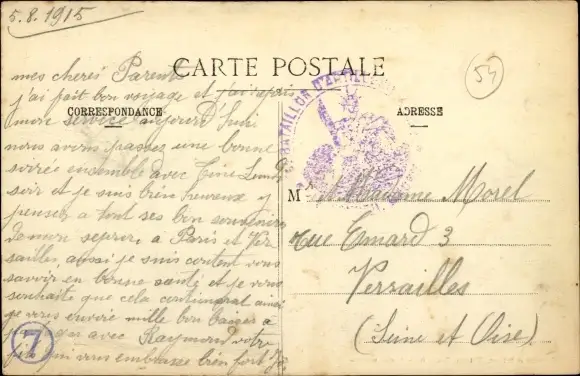 5.8.1915
54
CARTE POSTALE
CORRESPONDANCE
ADRESSE
BATAILLON D'ARTILLERIE
mes cheres Parents
j'ai fait bon voyage et j'ai repris
mon service aujourd'hui
nous avons passes une bonne
soirée ensemble avec Tine
soir et je suis bien heureux y
penser a tout ses bon souvenirs
de mon sejour, a Paris et Ver
sailles, aussi je suis content vous
savoir en bonne santé et je vous
souhaite que cela continurat ainsi
je vous envoie mille bon baiser a
avec Raymond votre
fils qui vous embrasse bien fort
M
Madame Morel
rue Esnard 3
Versailles
(Seine et Oise)
7